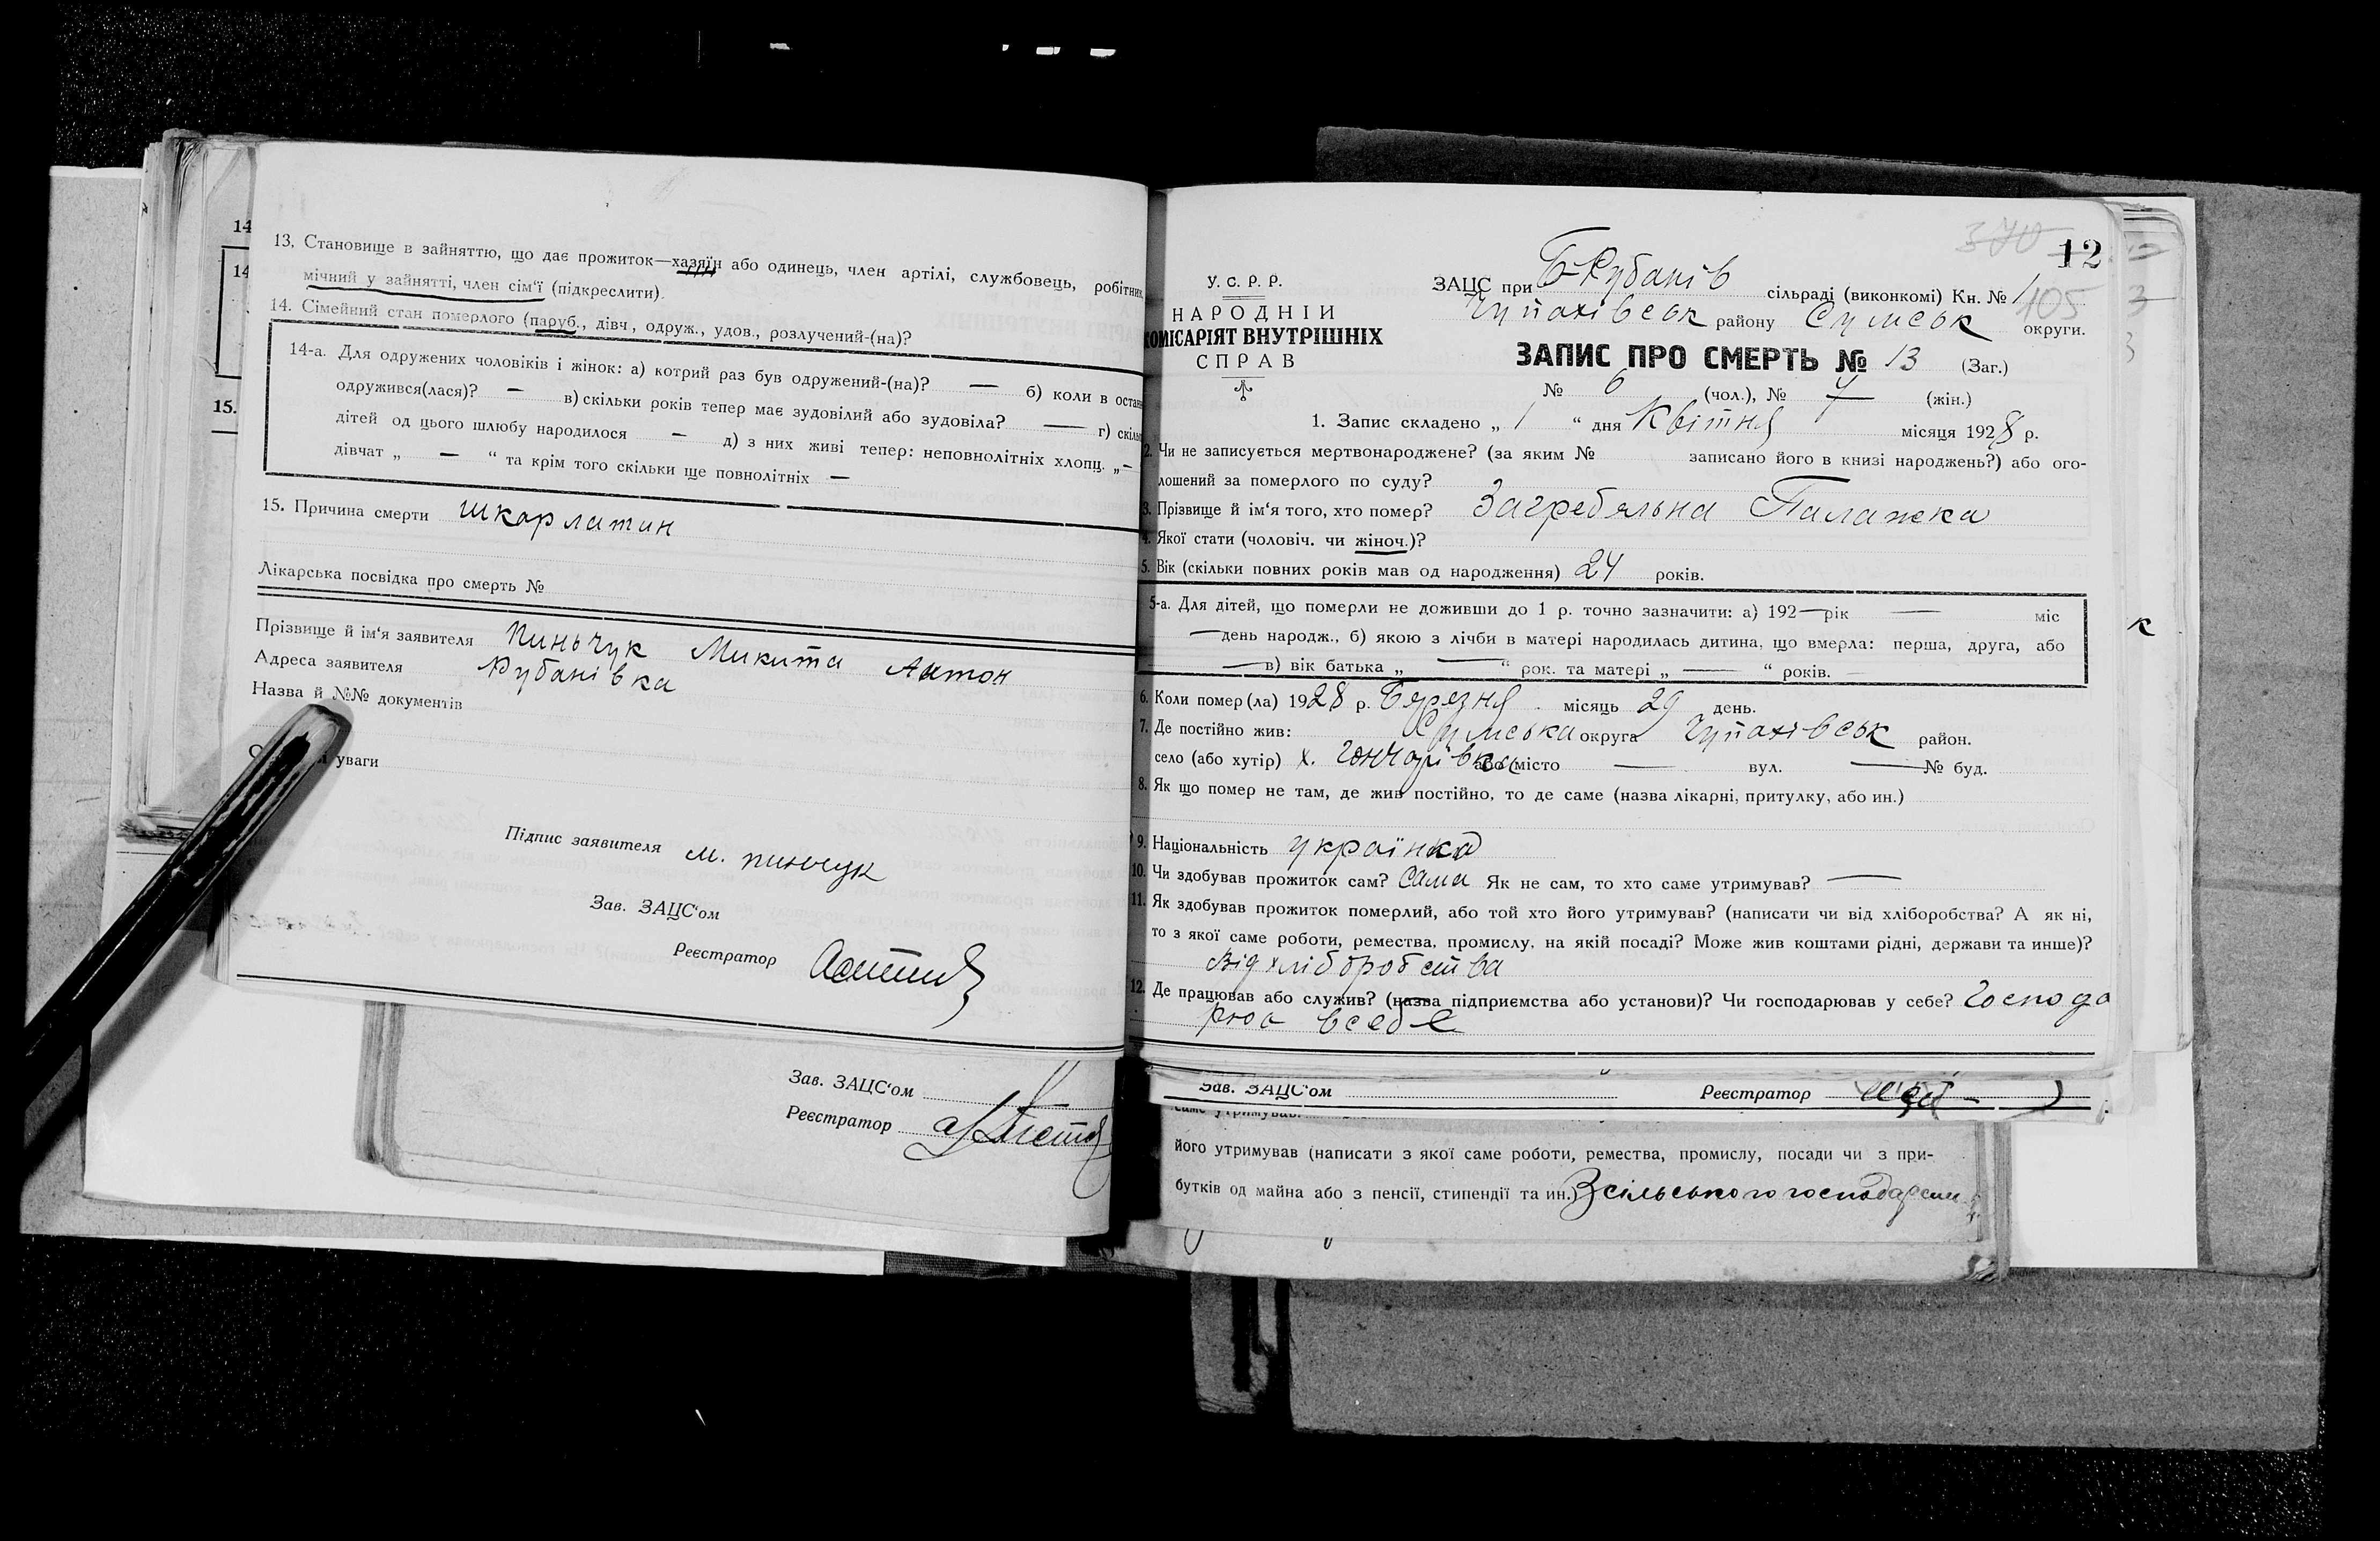 14
14
15.
13. Становище в зайняттю, що дає прожиток—хазяїн або одинець, член артілі, службовець, робітник,
мічний у зайнятті, член сім'ї (підкреслити).
14. Сімейний стан померлого (паруб., дівч., одруж., удов., розлучений-(на)?
14-а. Для одружених чоловіків і жінок: а) котрий раз був одружений-(на)? — б) коли в остан
одружився(лася)? — в) скільки років тепер має зудовілий або зудовіла? — г) скіль
дітей од цього шлюбу народилося — д) з них живі тепер: неповнолітніх хлопц. „—
дівчат „ — “ та крім того скільки ще повнолітніх —
15. Причина смерти шкарлатин
Лікарська посвідка про смерть №
Прізвище й ім'я заявителя Пиньчук Микита Антон
Адреса заявителя Рубанівка
Назва й №№ документів
уваги
Підпис заявителя М. пинчук
Зав. ЗАЦС'ом
Реєстратор
Зав. ЗАЦС'ом
Реєстратор
370 12
У. С. Р. Р.
НАРОДНІЙ
КОМІСАРІЯТ ВНУТРІШНІХ
СПРАВ
ЗАЦС при Б-Рубанів сільраді (виконкомі) Кн. № 1
105
Чупахівськ району Сумськ округи.
ЗАПИС ПРО СМЕРТЬ № 13 (Заг.)
№ 6 (чол.), № 7 (жін.)
1. Запис складено „ 1 “ дня Квітня місяця 1928 р.
2. Чи не записується мертвонароджене? (за яким № записано його в книзі народжень?) або ого-
лошений за померлого по суду?
3. Прізвище й ім'я того, хто помер? Загребельна Палажка
4. Якої стати (чоловіч. чи жіноч.)?
5. Вік (скільки повних років мав од народження) 24 років.
5-а. Для дітей, що померли не доживши до 1 р. точно зазначити: а) 192—рік — міс
—день народж., б) якою з лічби в матері народилась дитина, що вмерла: перша, друга, або
—в) вік батька „ — “ рок. та матері „ — “ років. —
к
6. Коли помер(ла) 1928 р. Березня місяць 29 день.
7. Де постійно жив: Сумська округа Чупахівськ район.
село (або хутір) х. Гончарівка або місто — вул. — № буд.
8. Як що помер не там, де жив постійно, то де саме (назва лікарні, притулку, або ин.)
9. Національність українка
10. Чи здобував прожиток сам? Сама Як не сам, то хто саме утримував? —
11. Як здобував прожиток померлий, або той хто його утримував? (написати чи від хліборобства? А як ні,
то з якої саме роботи, ремества, промислу, на якій посаді? Може жив коштами рідні, держави та инше)?
Від хліборобства
12. Де працював або служив? (назва підприємства або установи)? Чи господарював у себе? Господа
рюв всебе
Зав. ЗАЦС'ом Реєстратор
саме утримував.
його утримував (написати з якої саме роботи, ремества, промислу, посади чи з при-
бутків од майна або з пенсії, стипендії та ин.) З сільського господарств